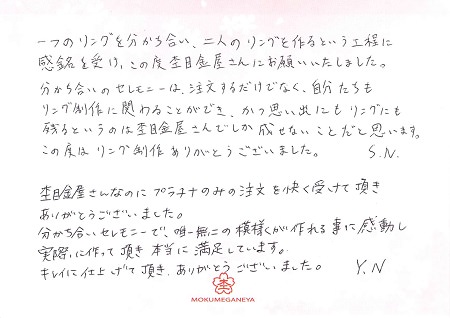 一つのリングを分かち合い、二人のリングを作るという工程に
感銘を受け、この度杢目金屋さんにお願いいたしました。
分かち合いのセレモニーは、注文するだけでなく、自分たちも
リング制作に関わることができ、かつ思い出にもリングにも
残るというのは杢目金屋さんでしか成せないことだと思います。
この度はリング制作ありがとうございました。 S.N.
杢目金屋さんなのにプラチナのみの注文を快く受けて頂き
ありがとうございました。
分かち合いセレモニーで、唯一無二の模様が作れる事に感動し
実際に作って頂き本当に満足しています。
キレイに仕上げて頂き、ありがとうございました。 Y.N
杢
MOKUMEGANEYA